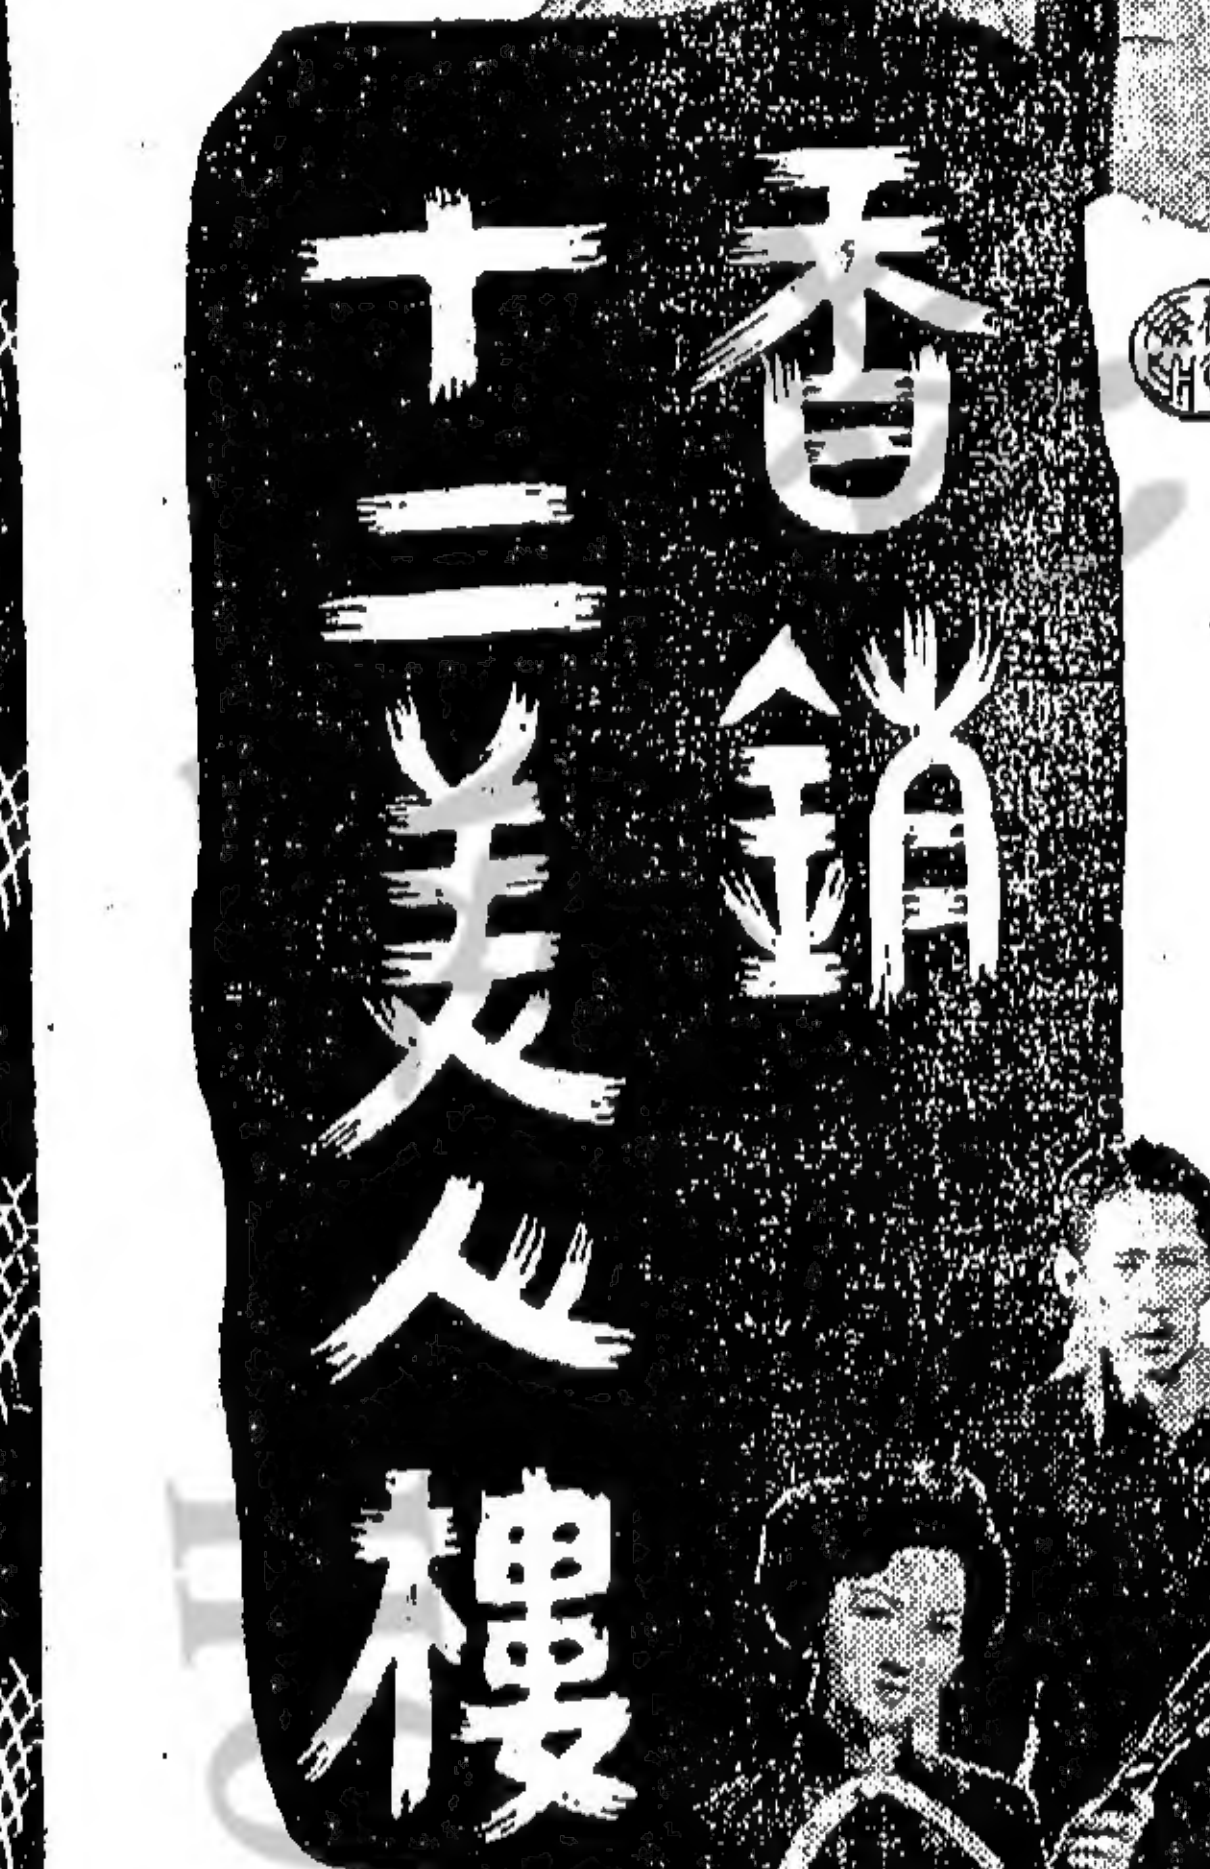 香鎖
十二美人樓